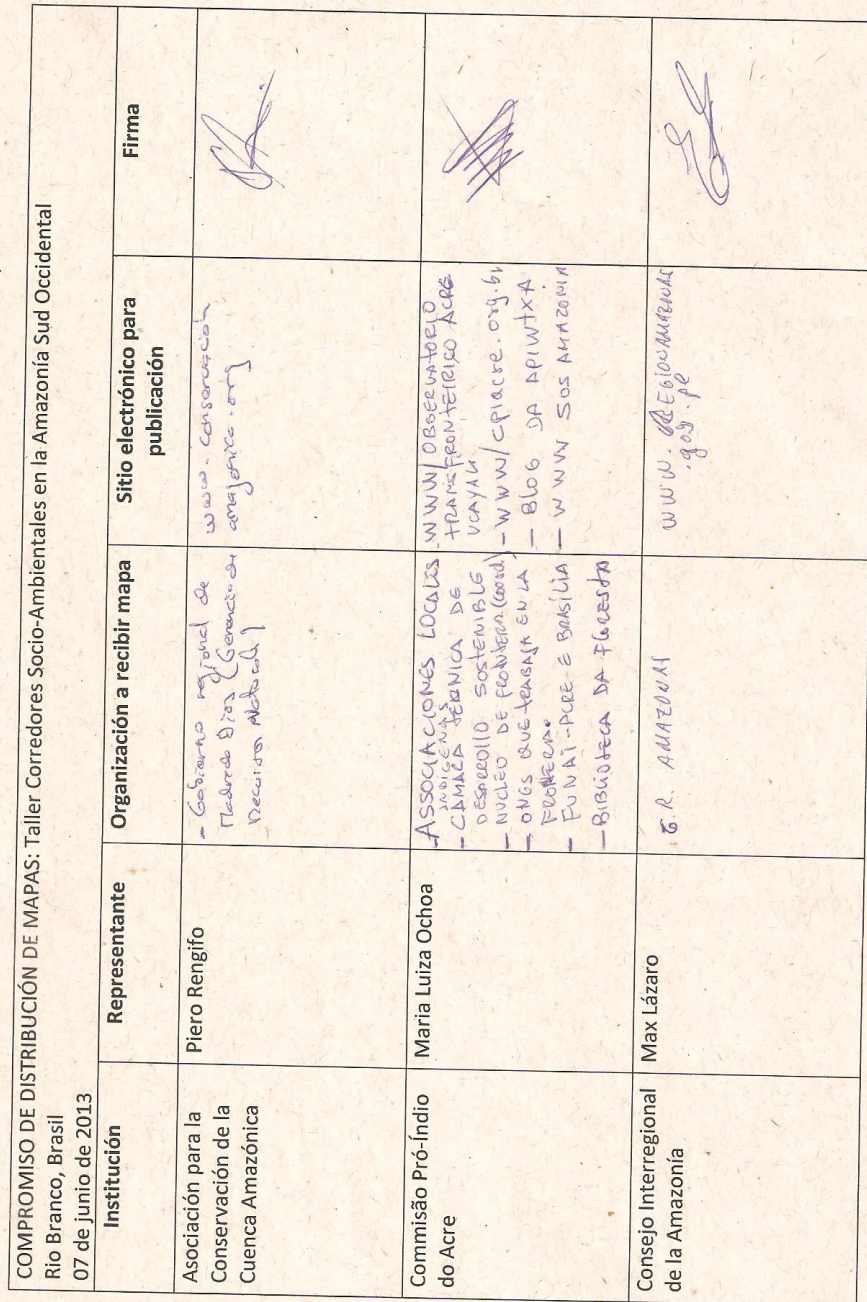 COMPROMISO DE DISTRIBUCIÓN DE MAPAS: Taller Corredores Socio-Ambientales en la Amazonía Sud Occidental
Rio Branco, Brasil
07 de junio de 2013
Institución
Representante
Organización a recibir mapa
Sitio electrónico para
publicación
Firma
Asociación para la
Conservación de la
Cuenca Amazónica
Piero Rengifo
- Gobierno regional de
Madre de Dios (Gerencia de
Recursos Naturales)
www.conservacion
amazonica.org
Commisão Pró-Índio
do Acre
Maria Luiza Ochoa
- ASSOCIACIONES LOCALES
INDIGENAS
- CAMARA TÉRNICA DE
DESARROLLO SOSTENIBLE
- NUCLEO DE FRONTERA (coord)
- ONGS QUE TRABAJA EN LA
FRONTERA.
- FUNAI-ACRE E BRASÍLIA
- BIBLIOTECA DA FLORESTA
- WWW/OBSERVATORIO
TRANSFRONTEIRIÇO ACRE
UCAYALI
- WWW/cpiacre.org.br
- BLOG DA APIWTXA
- WWW SOS AMAZONIA
Consejo Interregional
de la Amazonía
Max Lázaro
G.R. AMAZONAS
WWW.REGIONAMAZONAS
.gob.pe